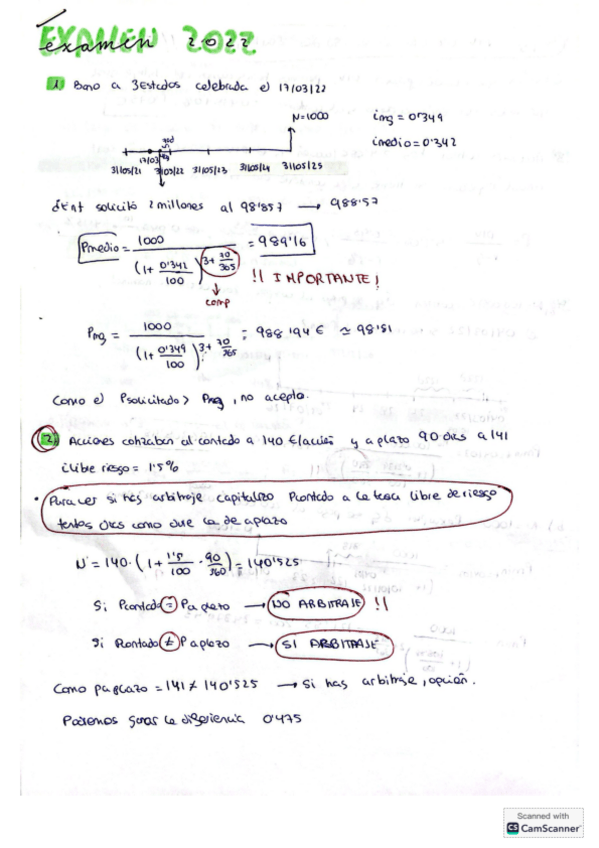 EXAMEN 2022
examen 2022
1 Bono a 3 Estados celebrada el 17/03/22
N=1000
img = 0'349
imedio = 0'342
17/03
31/05/21 31/05/22 31/05/23 31/05/24 31/05/25
solicitó 2 millones al 98'857 → 988'57
Pmedio = 1000 / (1 + 0'342/100)^(3 + 70/365) = 989'16
!! IMPORTANTE!
comp
Pmg = 1000 / (1 + 0'349/100)^(3 + 70/365) = 988'194 € ≃ 98'81
Como el Psolicitado > Pmg, no acepto.
2. Acciones cotizaban al contado a 140 €/acción y a plazo 90 días a 141
i libre riesgo = 1'5%
• Para ver si hay arbitraje capitalizo Pcontado a la tasa libre de riesgo
tantos días como dure la de aplazo
N = 140 · (1 + 1'5/100 · 90/360) = 140'525
Si Pcontado = Paplazo → NO ARBITRAJE !!
Si Pcontado ≠ Paplazo → SI ARBITRAJE
Como paplazo = 141 ≠ 140'525 → Si hay arbitraje, opción.
Podemos ganar la diferencia 0'475
Scanned with
CS CamScanner